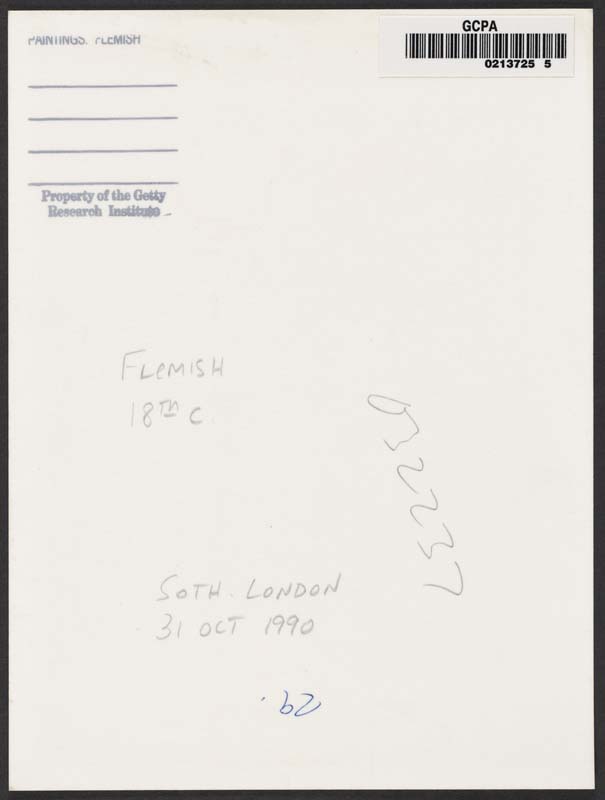 PAINTINGS. FLEMISH
GCPA
0213725 5
Property of the Getty
Research Institute
FLEMISH
18TH C.
SOTH. LONDON
31 OCT 1990